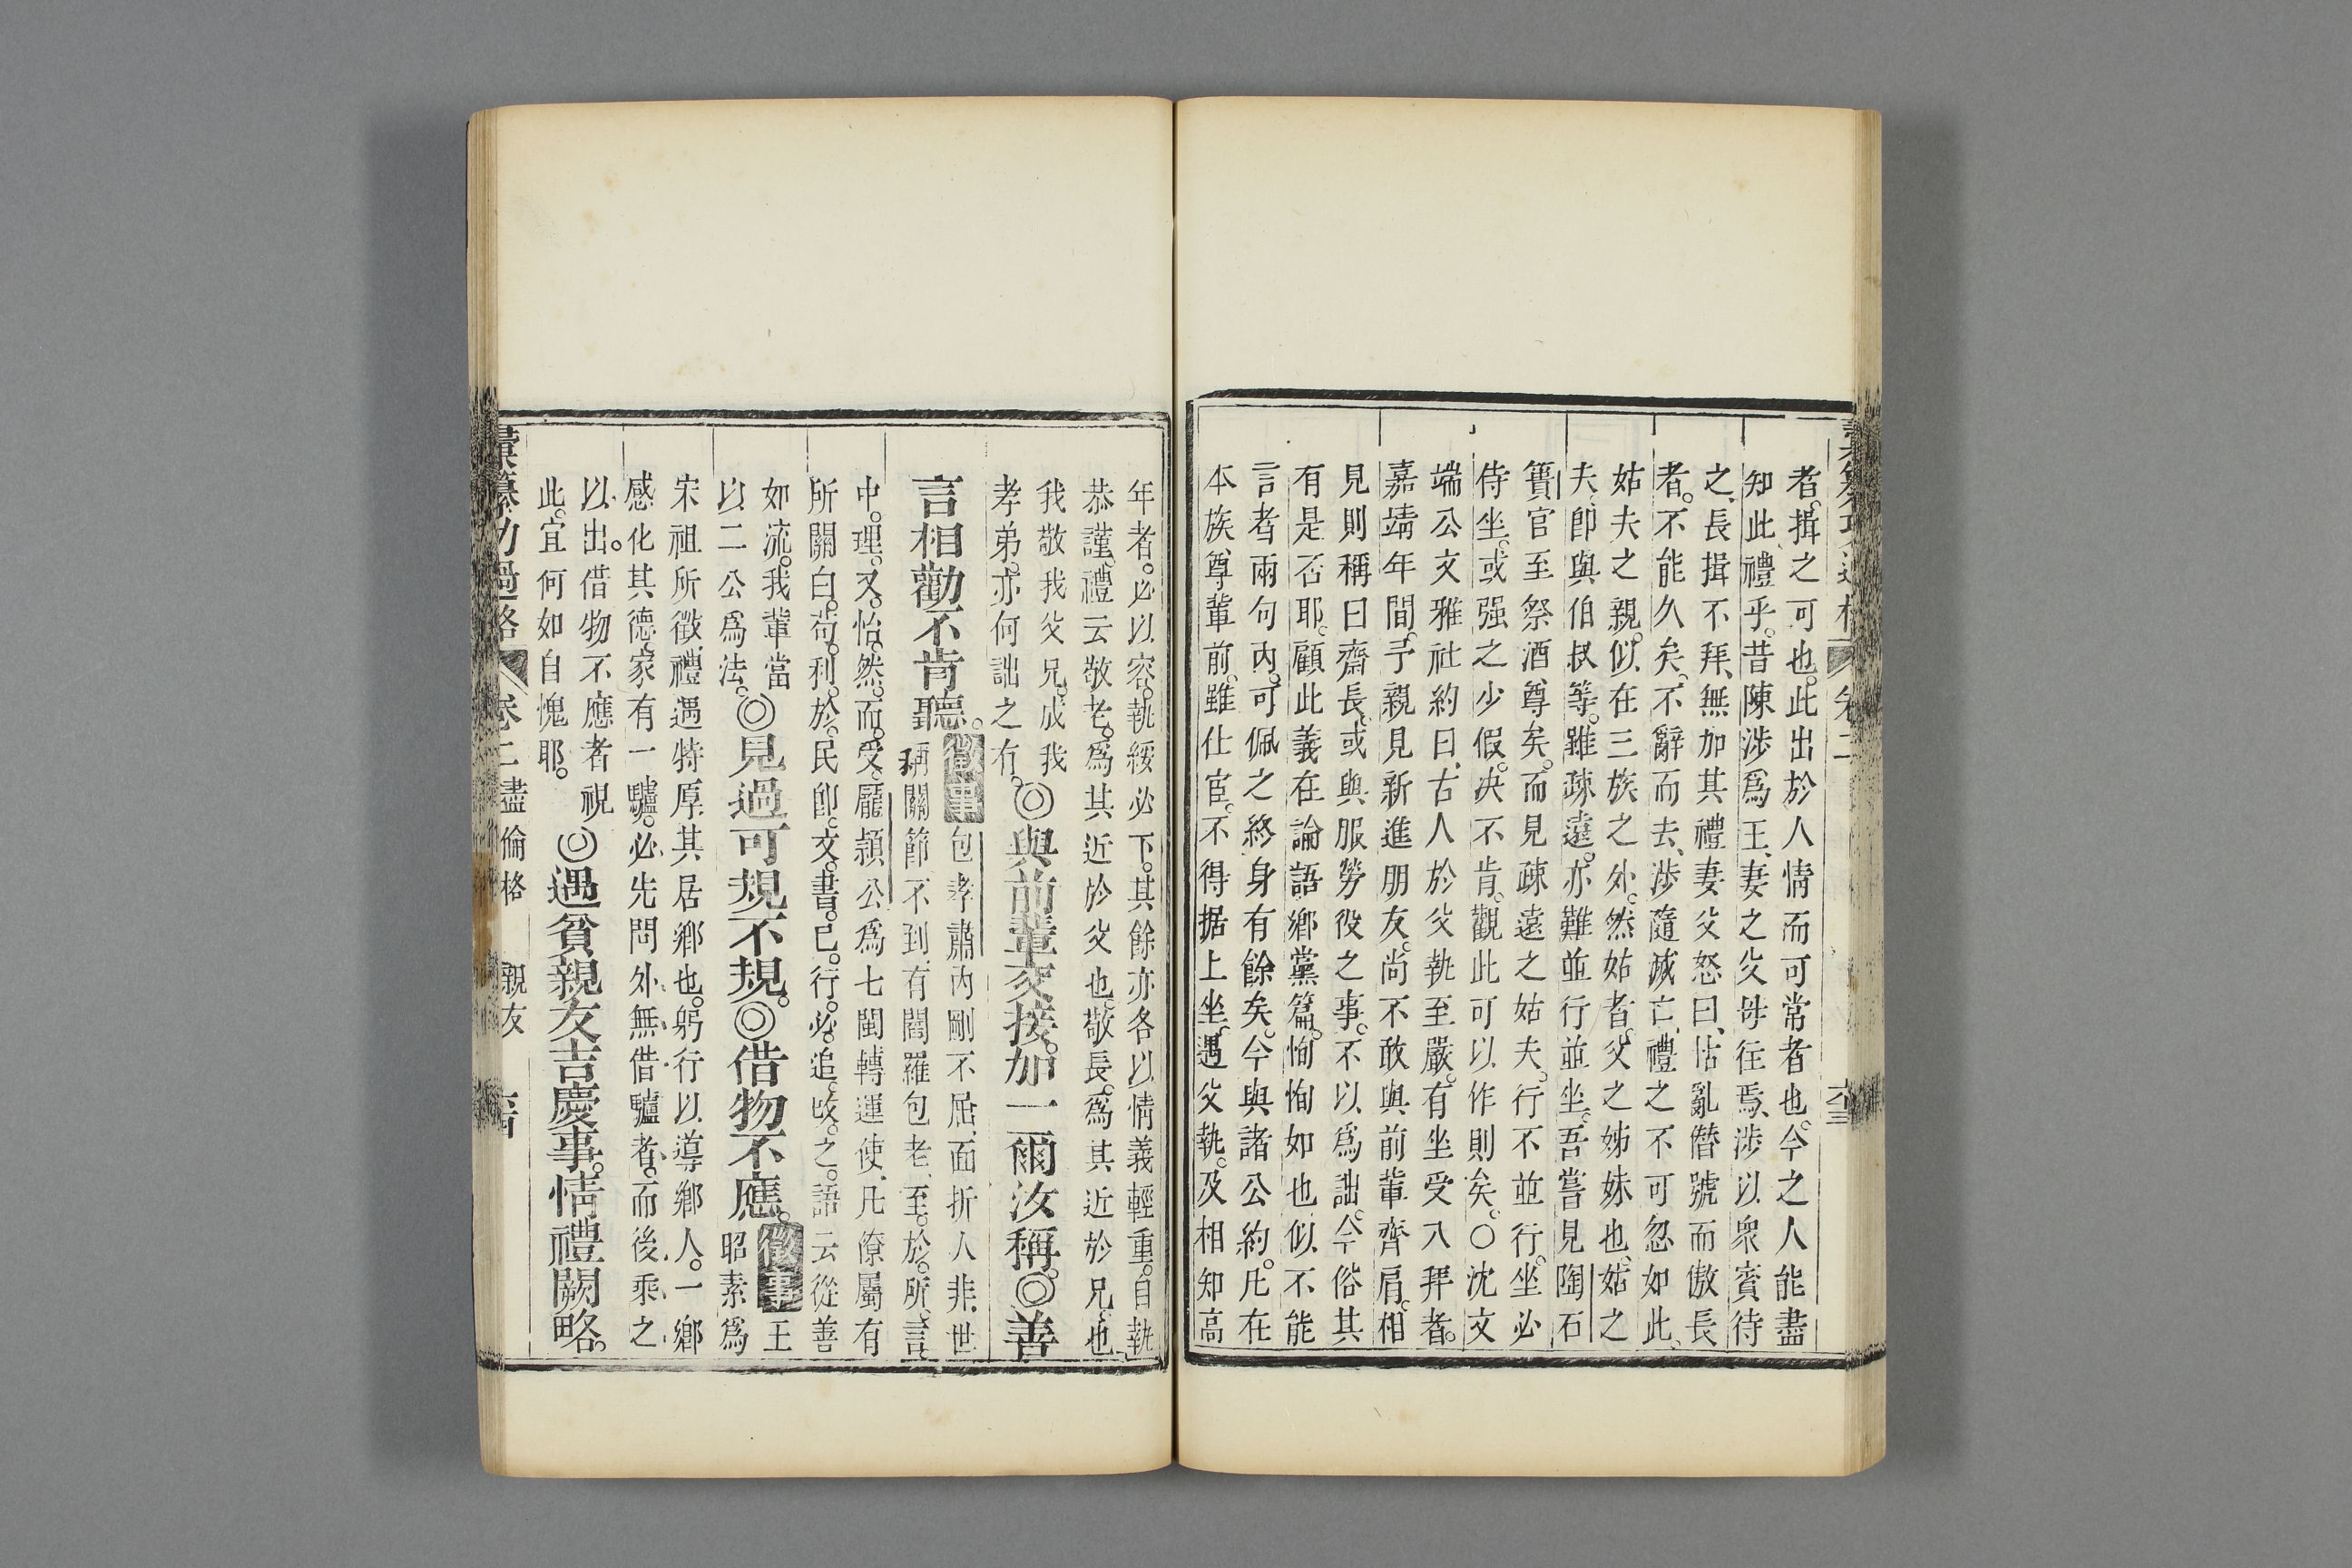 彚纂功過格 卷二 六三
者。揖之可也。此出於人情而可常者也。今之人能盡
知此禮乎。昔陳涉爲王、妻之父母往焉、涉以衆賓待
之、長揖不拜、無加其禮妻父怒曰、怙亂僭號而傲長
者。不能久矣、不辭而去、涉隨滅亡、禮之不可忽如此。
姑夫之親。似在三族之外。然姑者。父之姊妹也、姑之
夫、卽與伯叔等。雖疎遠。亦難並行並坐。吾嘗見陶石
簣官至祭酒、尊矣。而見疎遠之姑夫。行不並行。坐必
侍坐。或强之少假。决不肯。觀此可以作則矣。○沈文
端公文雅社約曰、古人於父執至嚴。有坐受入拜者。
嘉靖年間。予親見新進朋友。尚不敢與前輩齊肩。相
見則稱曰齋長。或與服勞役之事。不以爲詘。今俗其
有是否耶。顧此義在論語鄉黨篇。恂恂如也似不能
言者兩句內。可佩之終身有餘矣。今與諸公約。凡在
本族尊輩前。雖仕宦。不得据上坐。遇父執。及相知高
年者。必以容。執綏必下。其餘亦各以情義輕重。自執
恭謹。禮云敬老。爲其近於父也。敬長。爲其近於兄也
我敬我父兄。成我
孝弟。亦何詘之有。◎與前輩交接。加一爾汝稱。◎善
言相勸不肯聽。徵事包孝肅內剛不屈、面折人非、世
稱關節不到、有閻羅包老、至。於。所。言
中。理。又。怡。然。而。受。龐頴公爲七閩轉運使、凡僚屬有
所關白。苟。利。於。民卽。文。書。已。行。必。追。改。之。語云從善
如流。我輩當
以二公爲法。◎見過可規不規。◎借物不應。徵事王
昭素爲
宋祖所徵、禮遇特厚、其居鄉也。躬行以導鄉人。一鄉
感化其德、家有一驢。必先問外無借驢者。而後乘之
以出。借物不應者視
此。宜何如自愧耶。◎遇貧親友吉慶事。情禮闕略。
彚纂功過格 卷二盡倫格 親友 六四